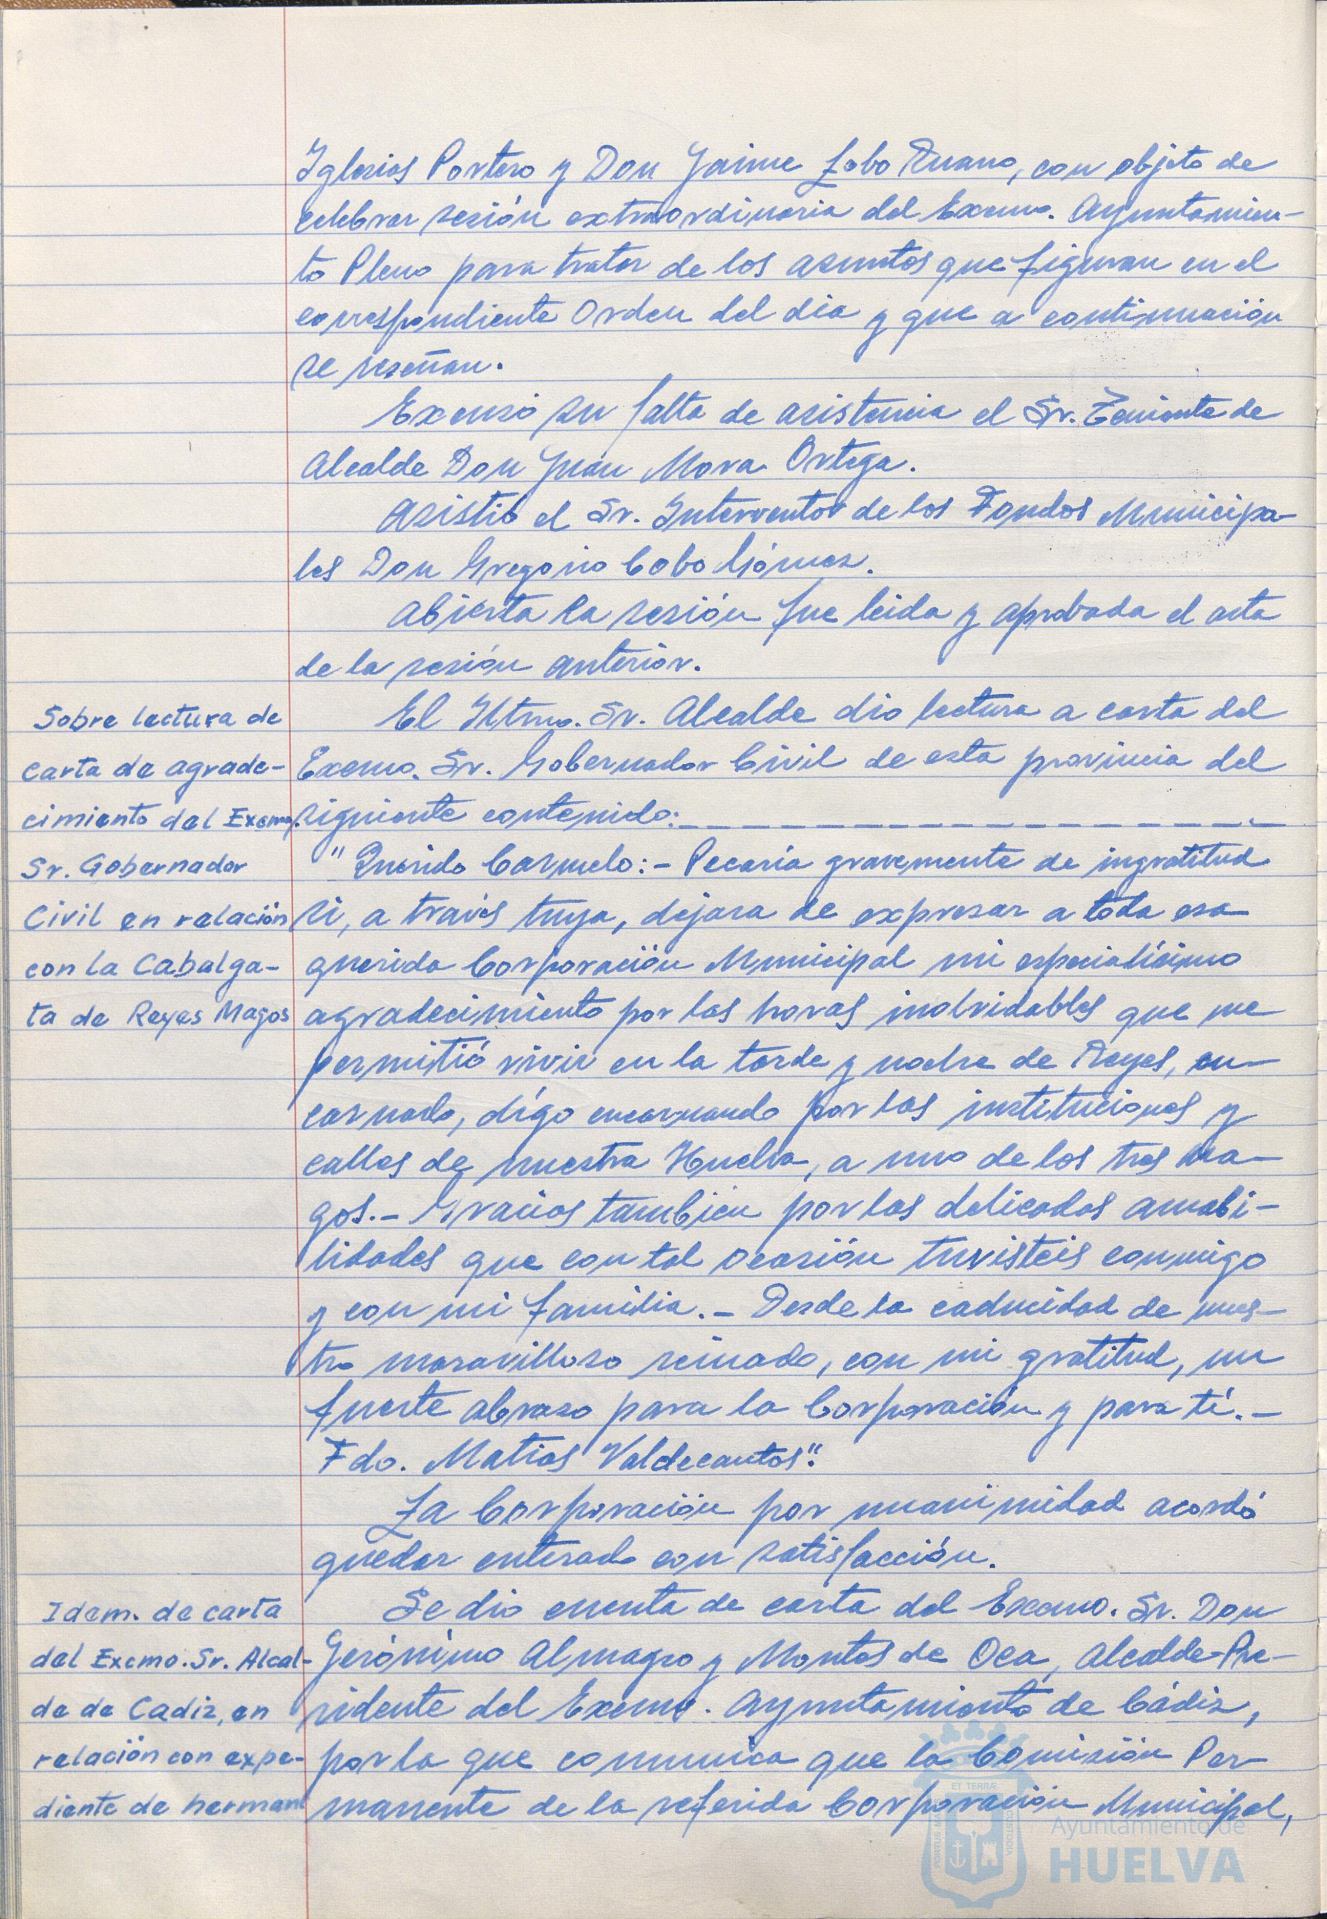 Iglesias Portero y Don Jaime Lobo Ruano, con objeto de
celebrar sesión extraordinaria del Excmo. Ayuntamien-
to Pleno para tratar de los asuntos que figuran en el
correspondiente Orden del dia y que a continuación
se reseñan.
Excusó su falta de asistencia el Sr. Teniente de
Alcalde Don Juan Mora Ortega.
Asistió el Sr. Interventor de los Fondos Municipa-
les Don Gregorio Cobo Gómez.
Abierta la sesión fue leida y aprobada el acta
de la sesión anterior.
Sobre lectura de
carta de agrade-
cimiento del Excmo.
Sr. Gobernador
Civil en relación
con la Cabalga-
ta de Reyes Magos
El Iltmo. Sr. Alcalde dio lectura a carta del
Excmo. Sr. Gobernador Civil de esta provincia del
siguiente contenido:_ _ _ _ _ _ _ _ _ _ _ _ _ _ _ _ _
"Querido Carmelo:- Pecaría gravemente de ingratitud
si, a través tuya, dejara de expresar a toda esa
querida Corporación Municipal mi especialísimo
agradecimiento por las horas inolvidables que me
permitió vivir en la tarde y noche de Reyes, en-
carnado, dígo encarnando por las instituciones y
calles de nuestra Huelva, a uno de los tres ma-
gos.- Gracias también por las delicadas amabi-
lidades que con tal ocasión tuvisteis conmigo
y con mi familia.- Desde la caducidad de nues-
tro maravilloso reinado, con mi gratitud, un
fuerte abrazo para la Corporación y para tí.-
Fdo. Matias Valdecantos".
La Corporación por unanimidad acordó
quedar enterada con satisfacción.
Idem. de carta
del Excmo. Sr. Alcal-
de de Cadiz, en
relación con expe-
diente de herman
Se dio cuenta de carta del Excmo. Sr. Don
Gerónimo Almagro y Montes de Oca, Alcalde-Pre-
sidente del Excmo. Ayuntamiento de Cádiz,
por la que comunica que la Comisión Per-
manente de la referida Corporación Municipal,
ET TERRÆ
Ayuntamiento de
HUELVA